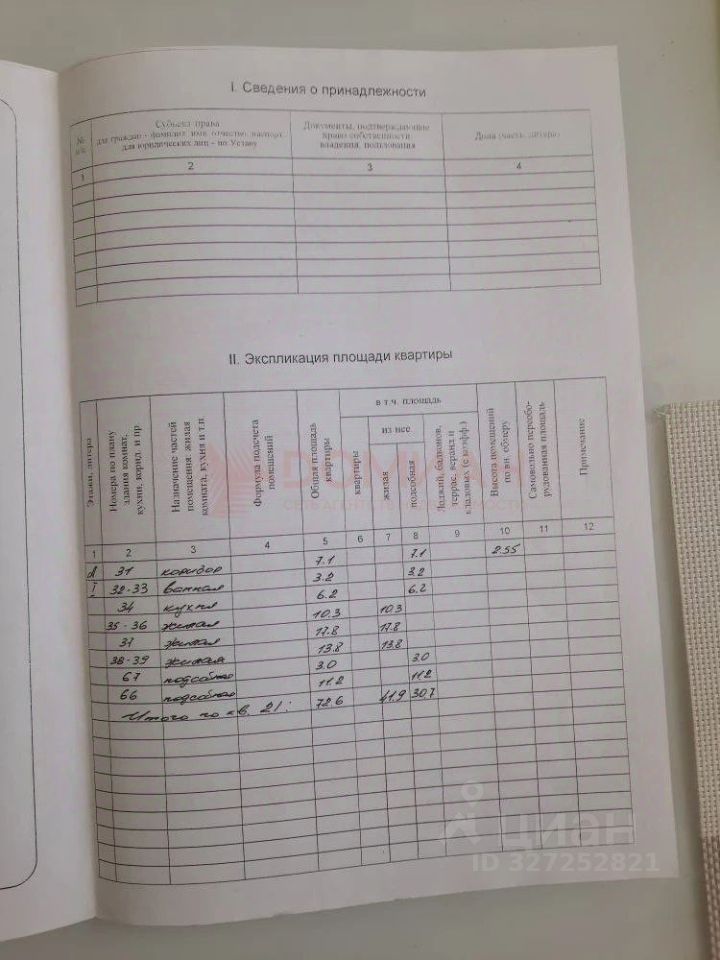 I. Сведения о принадлежности
№ п/п
Субъект права
для граждан - фамилия, имя, отчество, паспорт,
для юридических лиц - по Уставу
Документы, подтверждающие
право собственности,
владения, пользования
Доля (часть, литера)
1 2 3 4
II. Экспликация площади квартиры
Этажи, литера
Номера по плану
здания комнат,
кухни, корид. и пр.
Назначение частей
помещения: жилая
комната, кухня и т.п.
Формула подсчета
помещений
Общая площадь
квартиры
в т.ч. площадь
квартиры
из нее
жилая
подсобная
Лоджий, балконов,
террас, веранд и
кладовых (с коэфф.)
Высота помещений
по вн. обмеру
Самовольно переобо-
рудованная площадь
Примечание
1 2 3 4 5 6 7 8 9 10 11 12
31 коридор 7.1 7.1 2.55
I 32-33 ванная 3.2 3.2
34 кухня 6.2 6.2
35-36 жилая 10.3 10.3
37 жилая 17.8 17.8
38-39 жилая 13.8 13.8
67 подсобная 3.0 3.0
66 подсобная 11.2 11.2
Итого по кв. 21: 72.6 41.9 30.7
DOMКА
СЕТЬ АГЕНТСТВ НЕДВИЖИМОСТИ
циан
ID 327252821